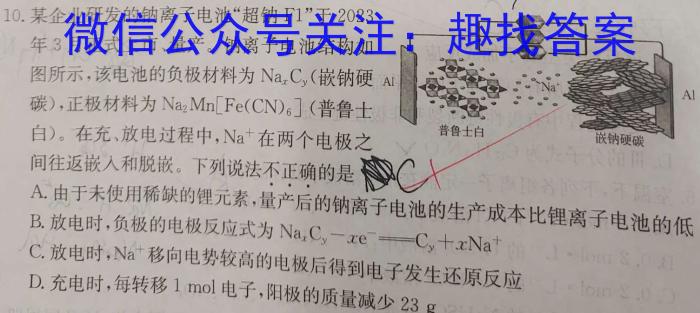 10. 某企业研发的钠离子电池“超钠F1”于2023
微信公众号关注：趣找答案
年3
图所示，该电池的负极材料为NaₓCᵧ(嵌钠硬
碳)，正极材料为Na₂Mn[Fe(CN)₆](普鲁士
白)。在充、放电过程中，Na⁺在两个电极之
间往返嵌入和脱嵌。下列说法不正确的是 C
Al
Na⁺
Al
普鲁士白
嵌钠硬碳
A. 由于未使用稀缺的锂元素，量产后的钠离子电池的生产成本比锂离子电池的低
B. 放电时，负极的电极反应式为NaₓCᵧ－xe⁻══Cᵧ＋xNa⁺
C. 放电时，Na⁺移向电势较高的电极后得到电子发生还原反应
D. 充电时，每转移1 mol电子，阳极的质量减少23 g